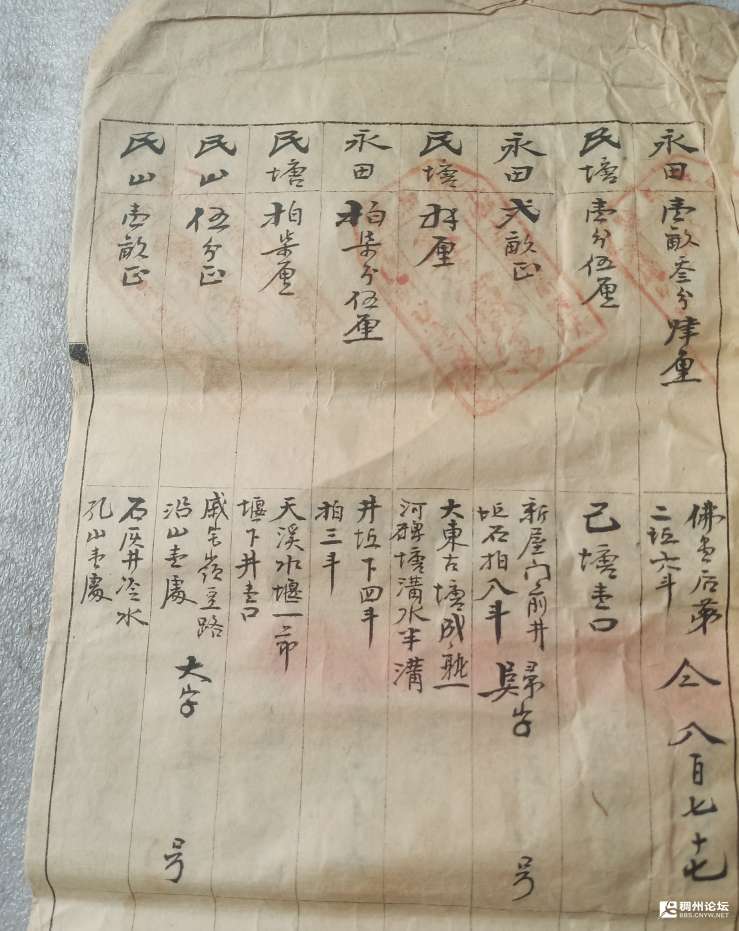 永田 壹畝叁分肆厘
佛堂后第
二坵六斗 仝 八百七十七
民塘 壹分伍厘
己塘壹口
永田 弍畝正
新屋门前井
坵石拍八斗 吳帚字 号
民塘 拜厘
大東古塘成
河碑塘溝水半溝
永田 柏柒分伍厘
井坵下四斗
拍三斗
民塘 柏柒厘
天溪水堰一節
堰下井壹口
民山 伍分正
嶺至路
沿山壹處 大字 号
民山 壹畝正
石灰井冷水
孔山壹處
稠州论坛
BBS.CNYW.NET